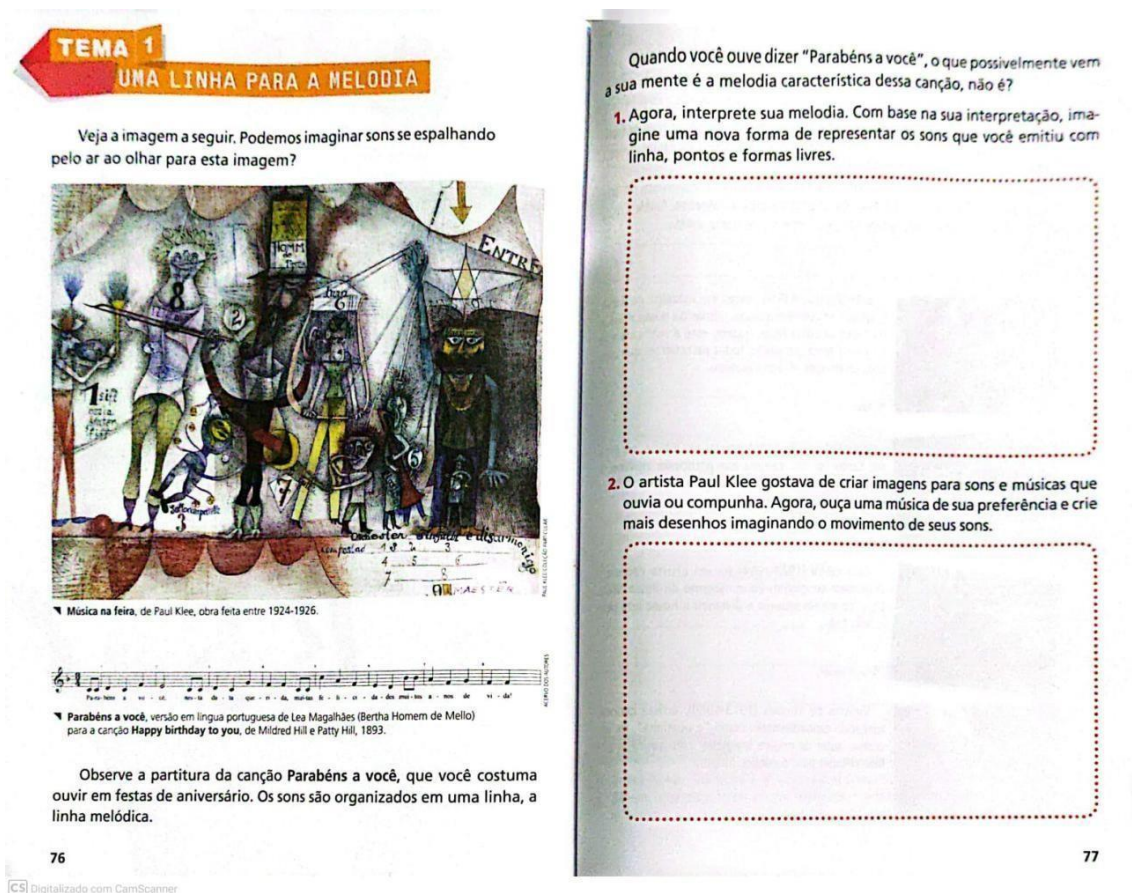 TEMA 1
UMA LINHA PARA A MELODIA
Veja a imagem a seguir. Podemos imaginar sons se espalhando
pelo ar ao olhar para esta imagem?
HOMM
ENTRÉ
8
2
6
1
5
4
3
Música na feira, de Paul Klee, obra feita entre 1924-1926.
ACERVO DOS AUTORES
Parabéns a você, versão em língua portuguesa de Lea Magalhães (Bertha Homem de Mello)
para a canção Happy birthday to you, de Mildred Hill e Patty Hill, 1893.
Observe a partitura da canção Parabéns a você, que você costuma
ouvir em festas de aniversário. Os sons são organizados em uma linha, a
linha melódica.
76
Quando você ouve dizer “Parabéns a você”, o que possivelmente vem
a sua mente é a melodia característica dessa canção, não é?
1. Agora, interprete sua melodia. Com base na sua interpretação, ima-
gine uma nova forma de representar os sons que você emitiu com
linha, pontos e formas livres.
2. O artista Paul Klee gostava de criar imagens para sons e músicas que
ouvia ou compunha. Agora, ouça uma música de sua preferência e crie
mais desenhos imaginando o movimento de seus sons.
77
CS Digitalizado com CamScanner